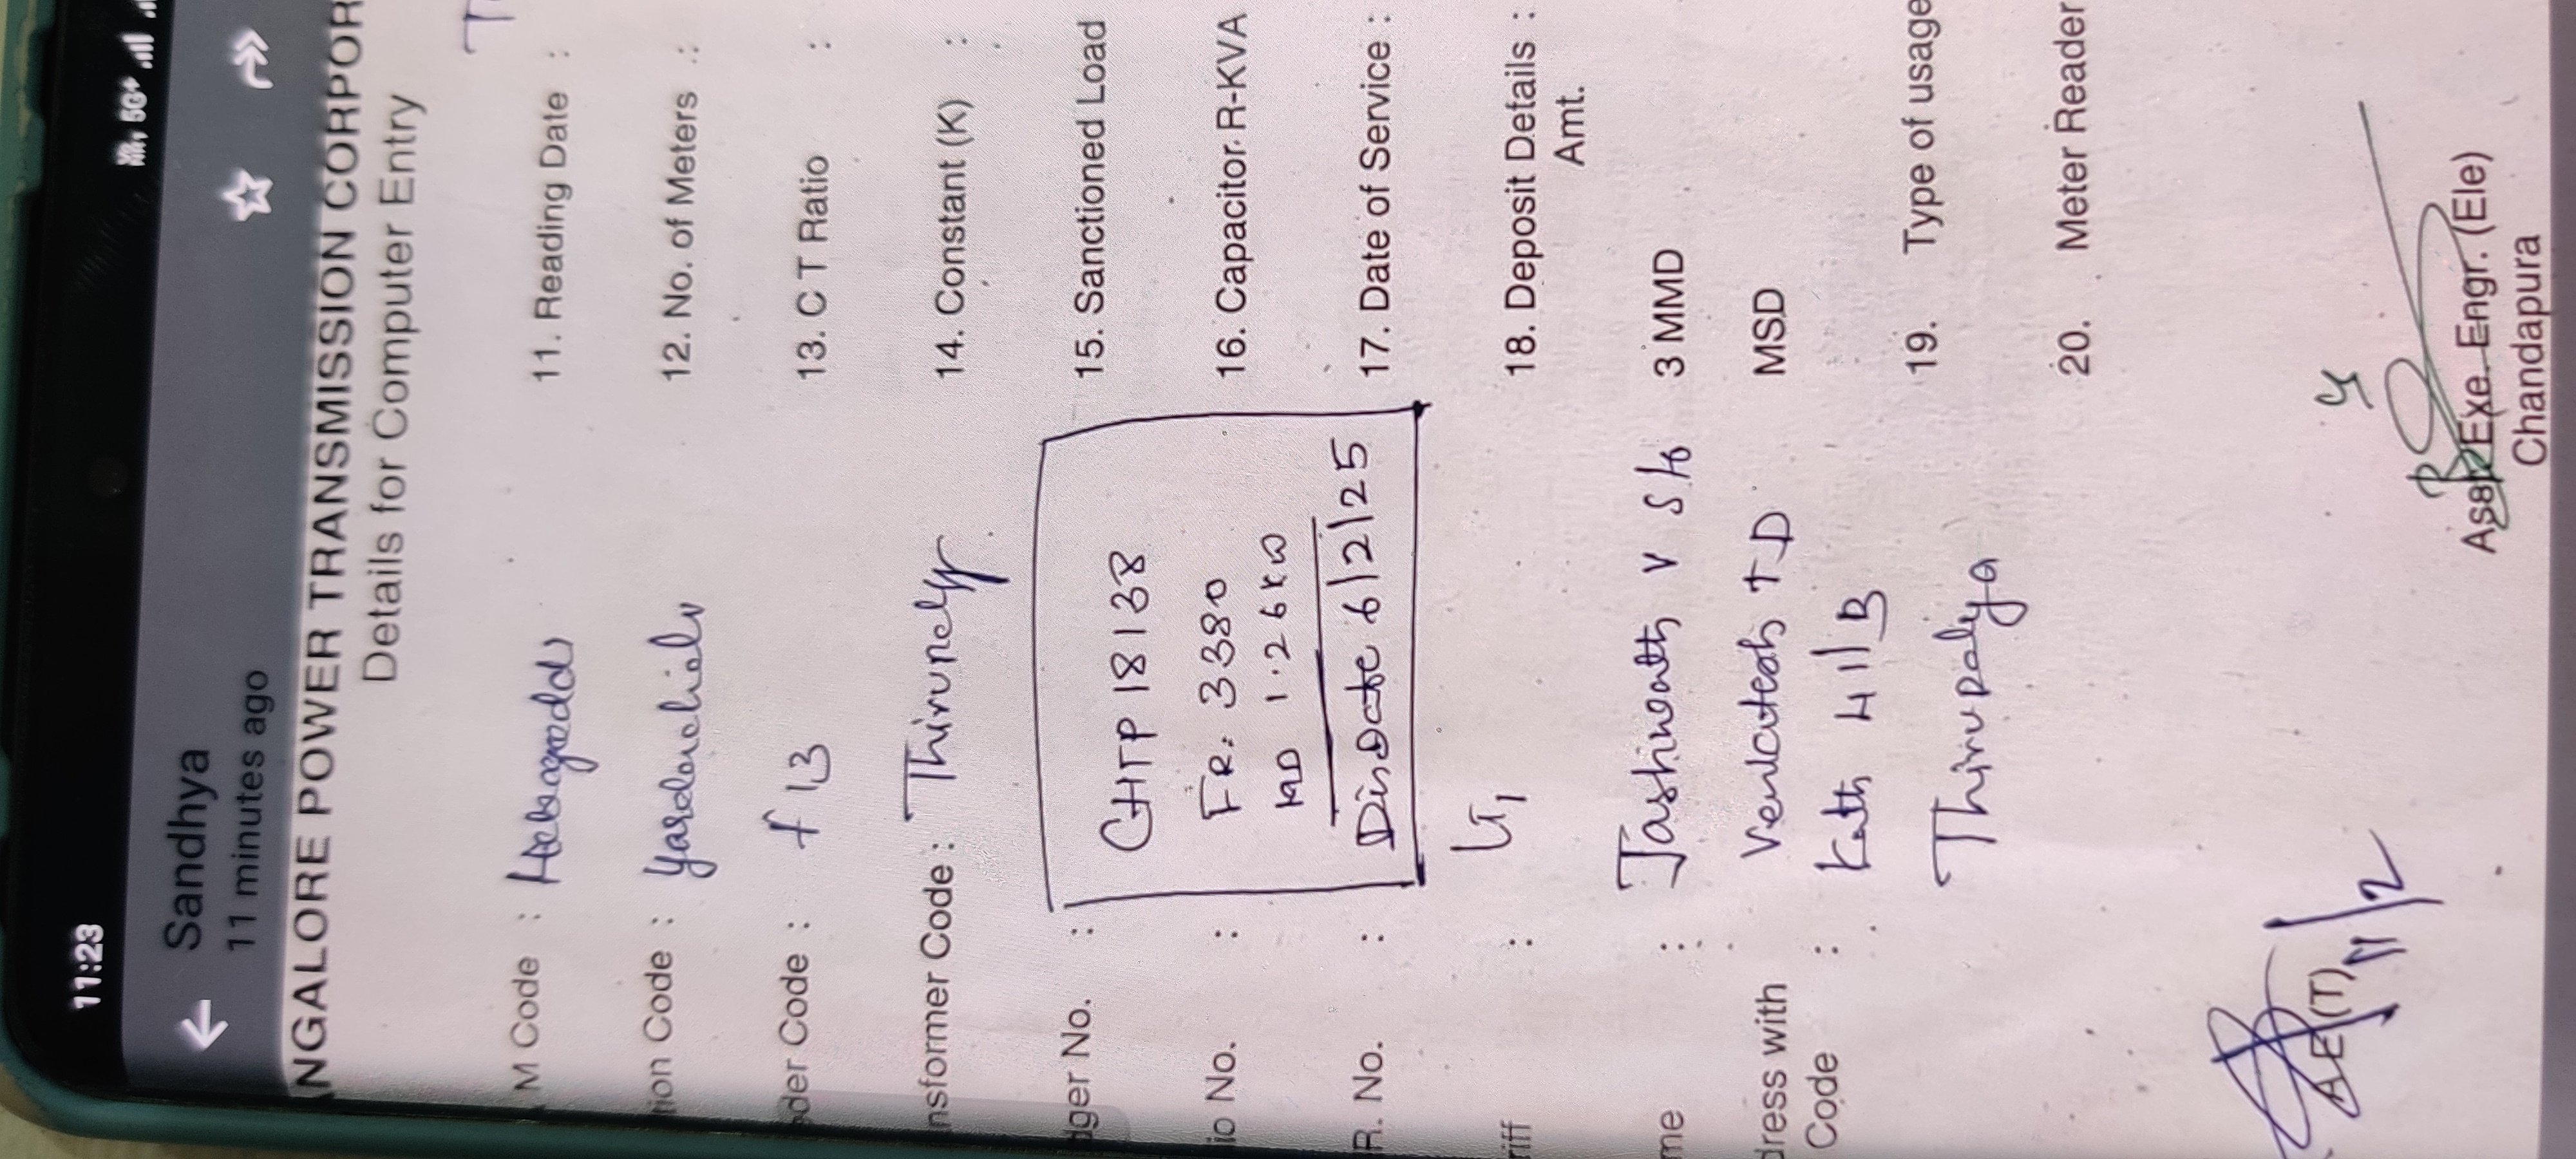 11:23
5G+
Sandhya
11 minutes ago
NGALORE POWER TRANSMISSION CORPOR
Details for Computer Entry
M Code : Hebbagodi 11. Reading Date :
tion Code : 12. No. of Meters :
der Code : f 13 13. C T Ratio :
nsformer Code : 14. Constant (K) :
dger No. : CHTP 18138 15. Sanctioned Load
io No. : FR: 3380 16. Capacitor R-KVA
MD 1.26KW
R. No. : DisDate 6/2/25 17. Date of Service :
riff : 18. Deposit Details :
Amt.
me : Jashwath V S/o 3 MMD
dress with Venkatesh T D MSD
Code : Kath 411/B
Thirupalya 19. Type of usage
20. Meter Reader
AE(T) 11/2
Asst. Exe. Engr. (Ele)
Chandapura